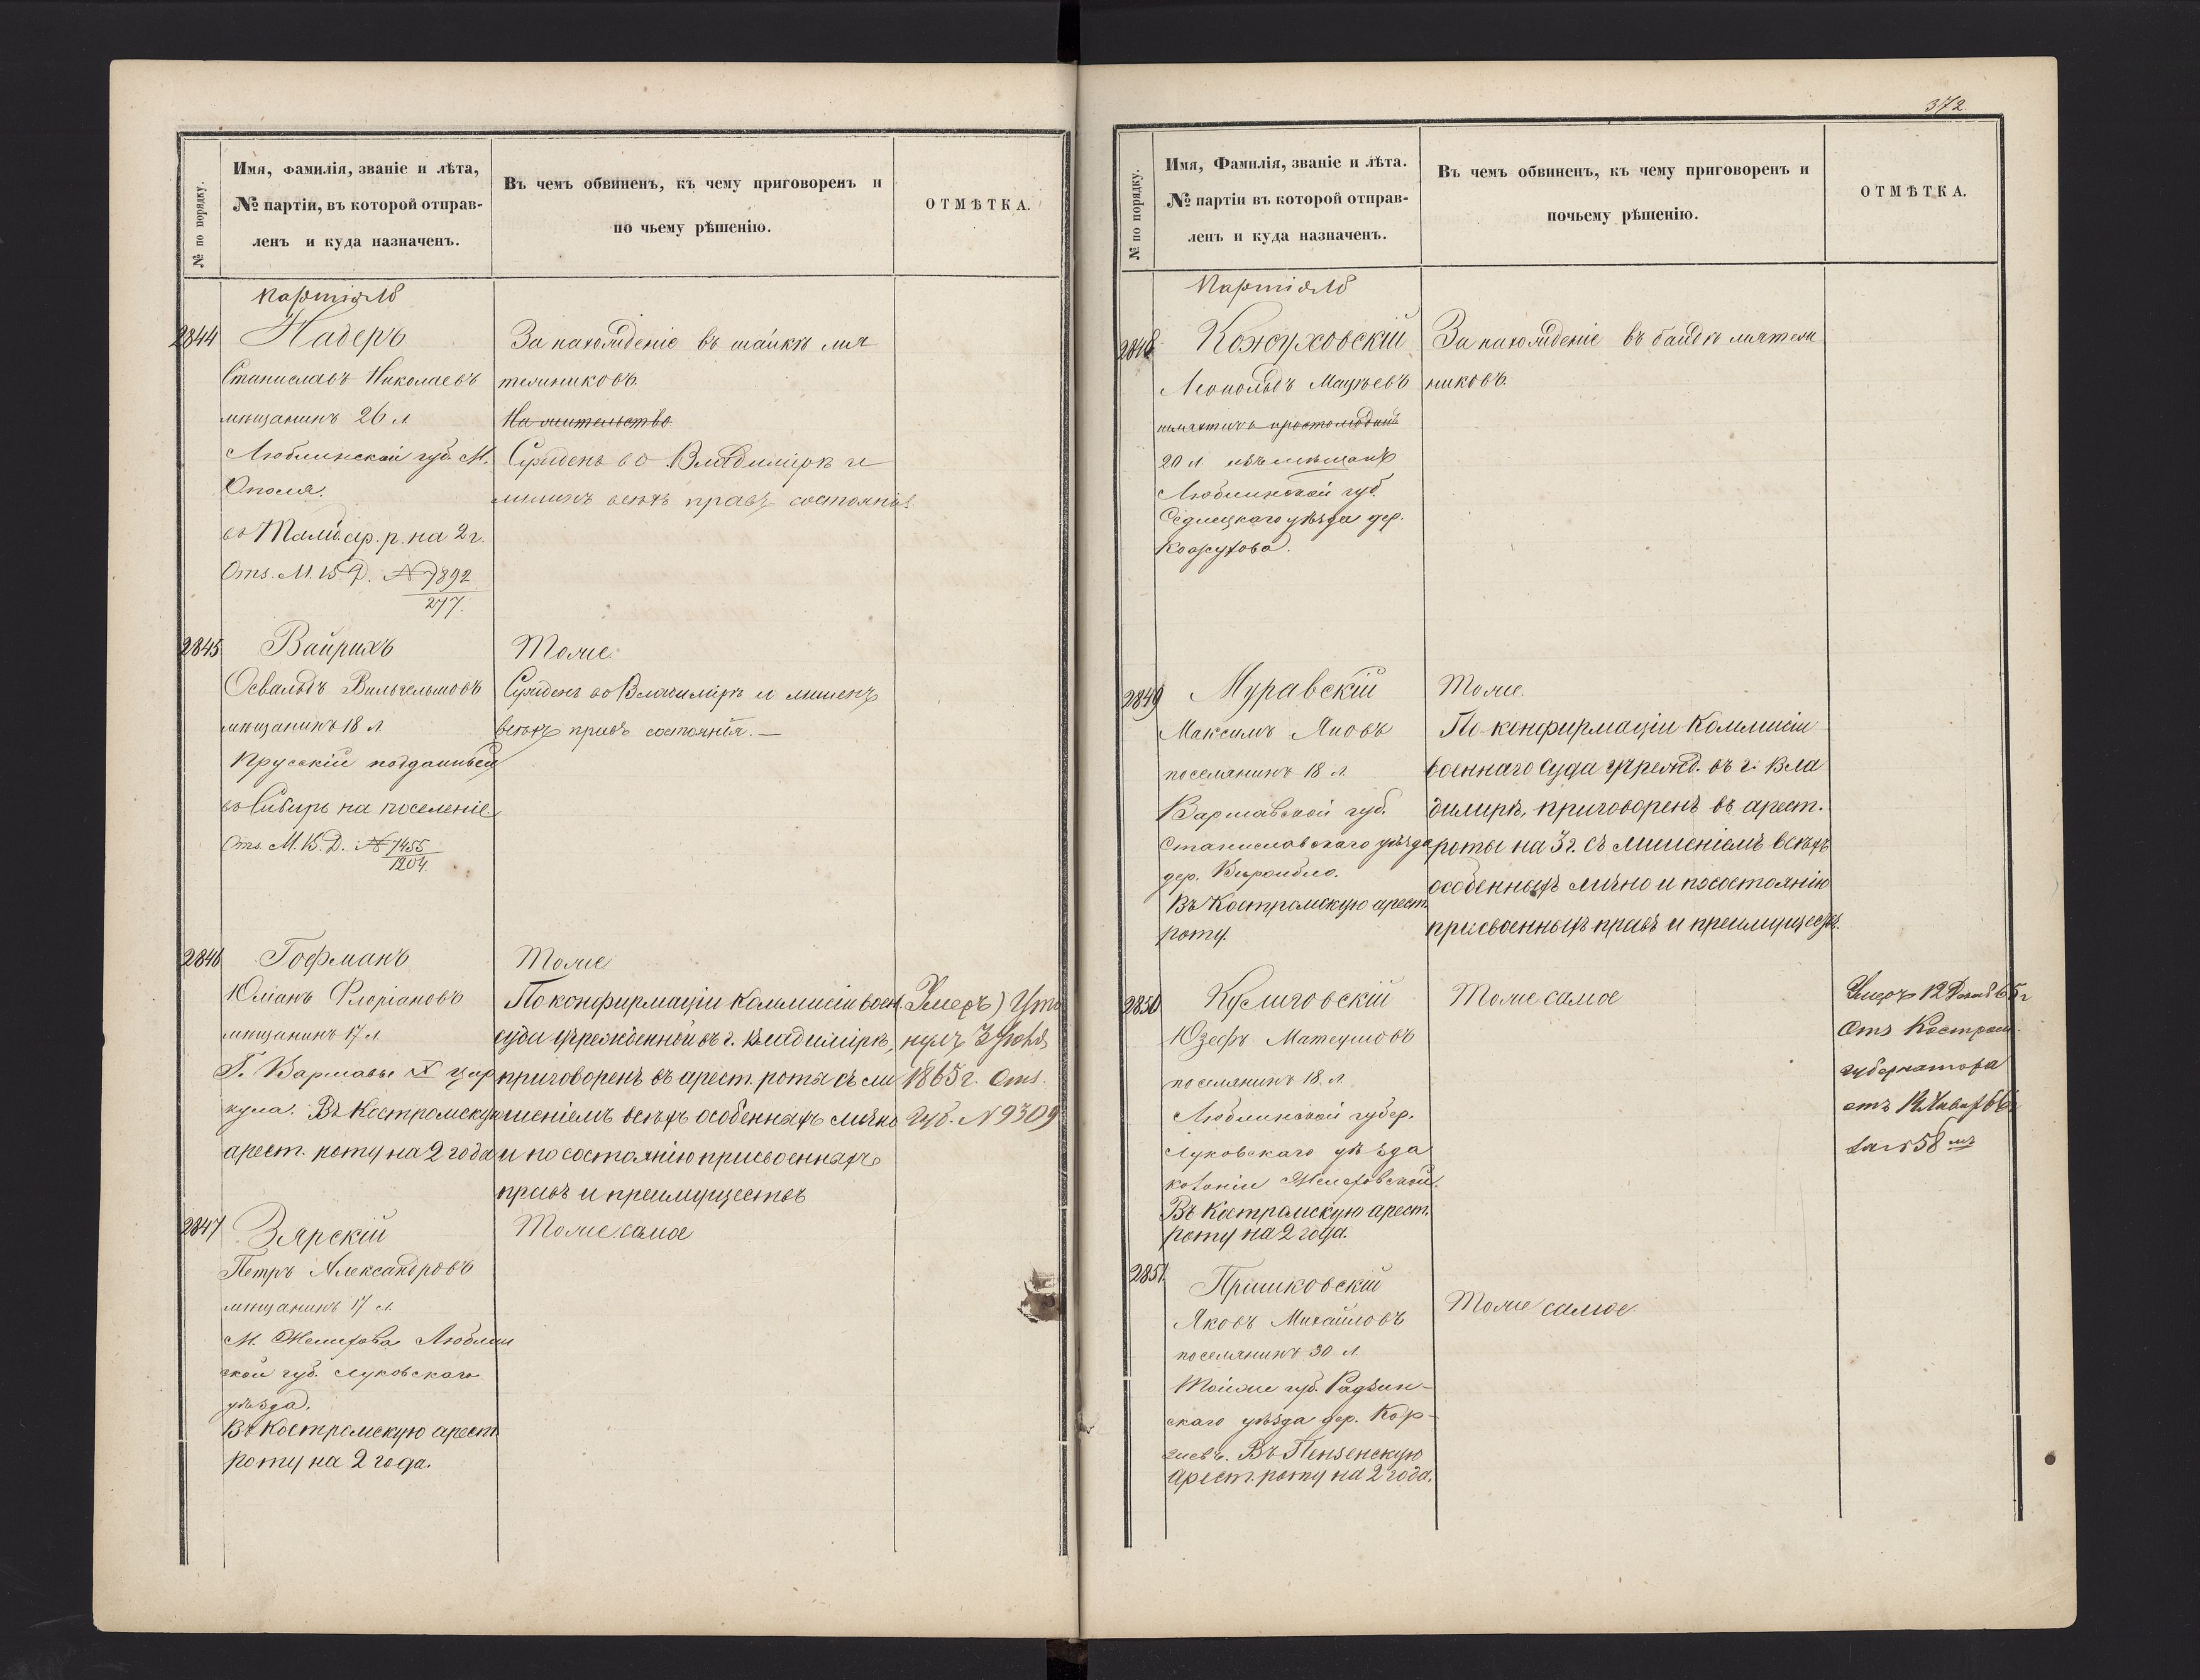 372.
№ по порядку.
Имя, фамилія, званіе и лѣта,
№ партіи, въ которой отправ-
ленъ и куда назначенъ.
Въ чемъ обвиненъ, къ чему приговоренъ и
по чьему рѣшенію.
ОТМѢТКА.
Партія 18
2844
Надеръ
Станиславъ Николаевъ
мѣщанинъ 26 л
Люблинской губ. М.
Ополя.
Отз. М. В. Д. № 7892
277.
За нахожденіе въ шайкѣ мя
тежниковъ.
На жительство
Сужденъ во Владимірѣ и
лишенъ всѣхъ правъ состоянія.
2845
Вайрихъ
Освальдъ Вильгельмовъ
мѣщанинъ 18 л
Прусскій подданный
въ Сибирь на поселеніе.
Отз. М. В. Д. № 7455
1204.
Тоже.
Сужденъ во Владимірѣ и лишенъ
всѣхъ правъ состоянія. —
2846
Гофманъ
Юліанъ Флоріановъ
мѣщанинъ 17 л
Г. Варшавы X цир
кула. Въ Костромскую
арест. роту на 2 года
Тоже
По конфирмаціи Коммисіи воен.
суда учрежденной въ г. Владимірѣ,
приговоренъ въ арест. роты съ ли
шеніемъ всѣхъ особенныхъ лично
и по состоянію присвоенныхъ
правъ и преимуществъ
(Умеръ) Уто
нулъ 3 Іюня
1865 г. Отз.
Губ. № 9309
2847
Зярскій
Петръ Александровъ
мѣщанинъ 17 л
М. Желихова Люблин
ской губ. Луковскаго
уѣзда.
Въ Костромскую арест.
роту на 2 года.
Тоже самое
№ по порядку.
Имя, Фамилія, званіе и лѣта.
№ партіи въ которой отправ-
ленъ и куда назначенъ.
Въ чемъ обвиненъ, къ чему приговоренъ и
почьему рѣшенію.
ОТМѢТКА.
Партія 18
2848
Кожуховскій
Леопольдъ Мацѣевъ
шляхтичъ простолюдинъ
20 л. изъ мѣщанъ
Люблинской губ.
Седлецкаго уѣзда дер.
Кожухова.
За нахожденіе въ бандѣ мятеж
никовъ.
2849
Муравскій
Максимъ Яновъ
поселянинъ 18 л.
Варшавской губ.
Станиславскаго уѣзда
дер.
Въ Костромскую арест.
роту.
Тоже.
По конфирмаціи Коммисіи
военнаго суда учрежд. въ г. Вла
димирѣ, приговоренъ въ арест.
роты на 3 г. съ лишеніемъ всѣхъ
особенныхъ лично и посостоянію
присвоенныхъ правъ и преимуществъ.
2850
Кусмиговскій
Юзефъ Матеушовъ
поселянинъ 18 л.
Люблинской губер.
Луковскаго уѣзда
колоніи Желеховской.
Въ Костромскую арест.
роту на 2 года.
Тоже самое
Умеръ 12 Декаб 65 г
Отз Костром.
губернатора
отъ 12 Января 66
за № 58
2851
Пришковскій
Яковъ Михайловъ
поселянинъ 30 л.
Тойже губ. Радзин-
скаго уѣзда дер. Кор-
Въ Пензенскую
арест. роту на 2 года.
Тоже самое